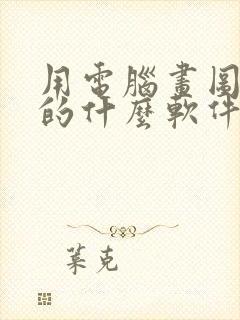 用電腦畫圖
的什麼軟件
葉克